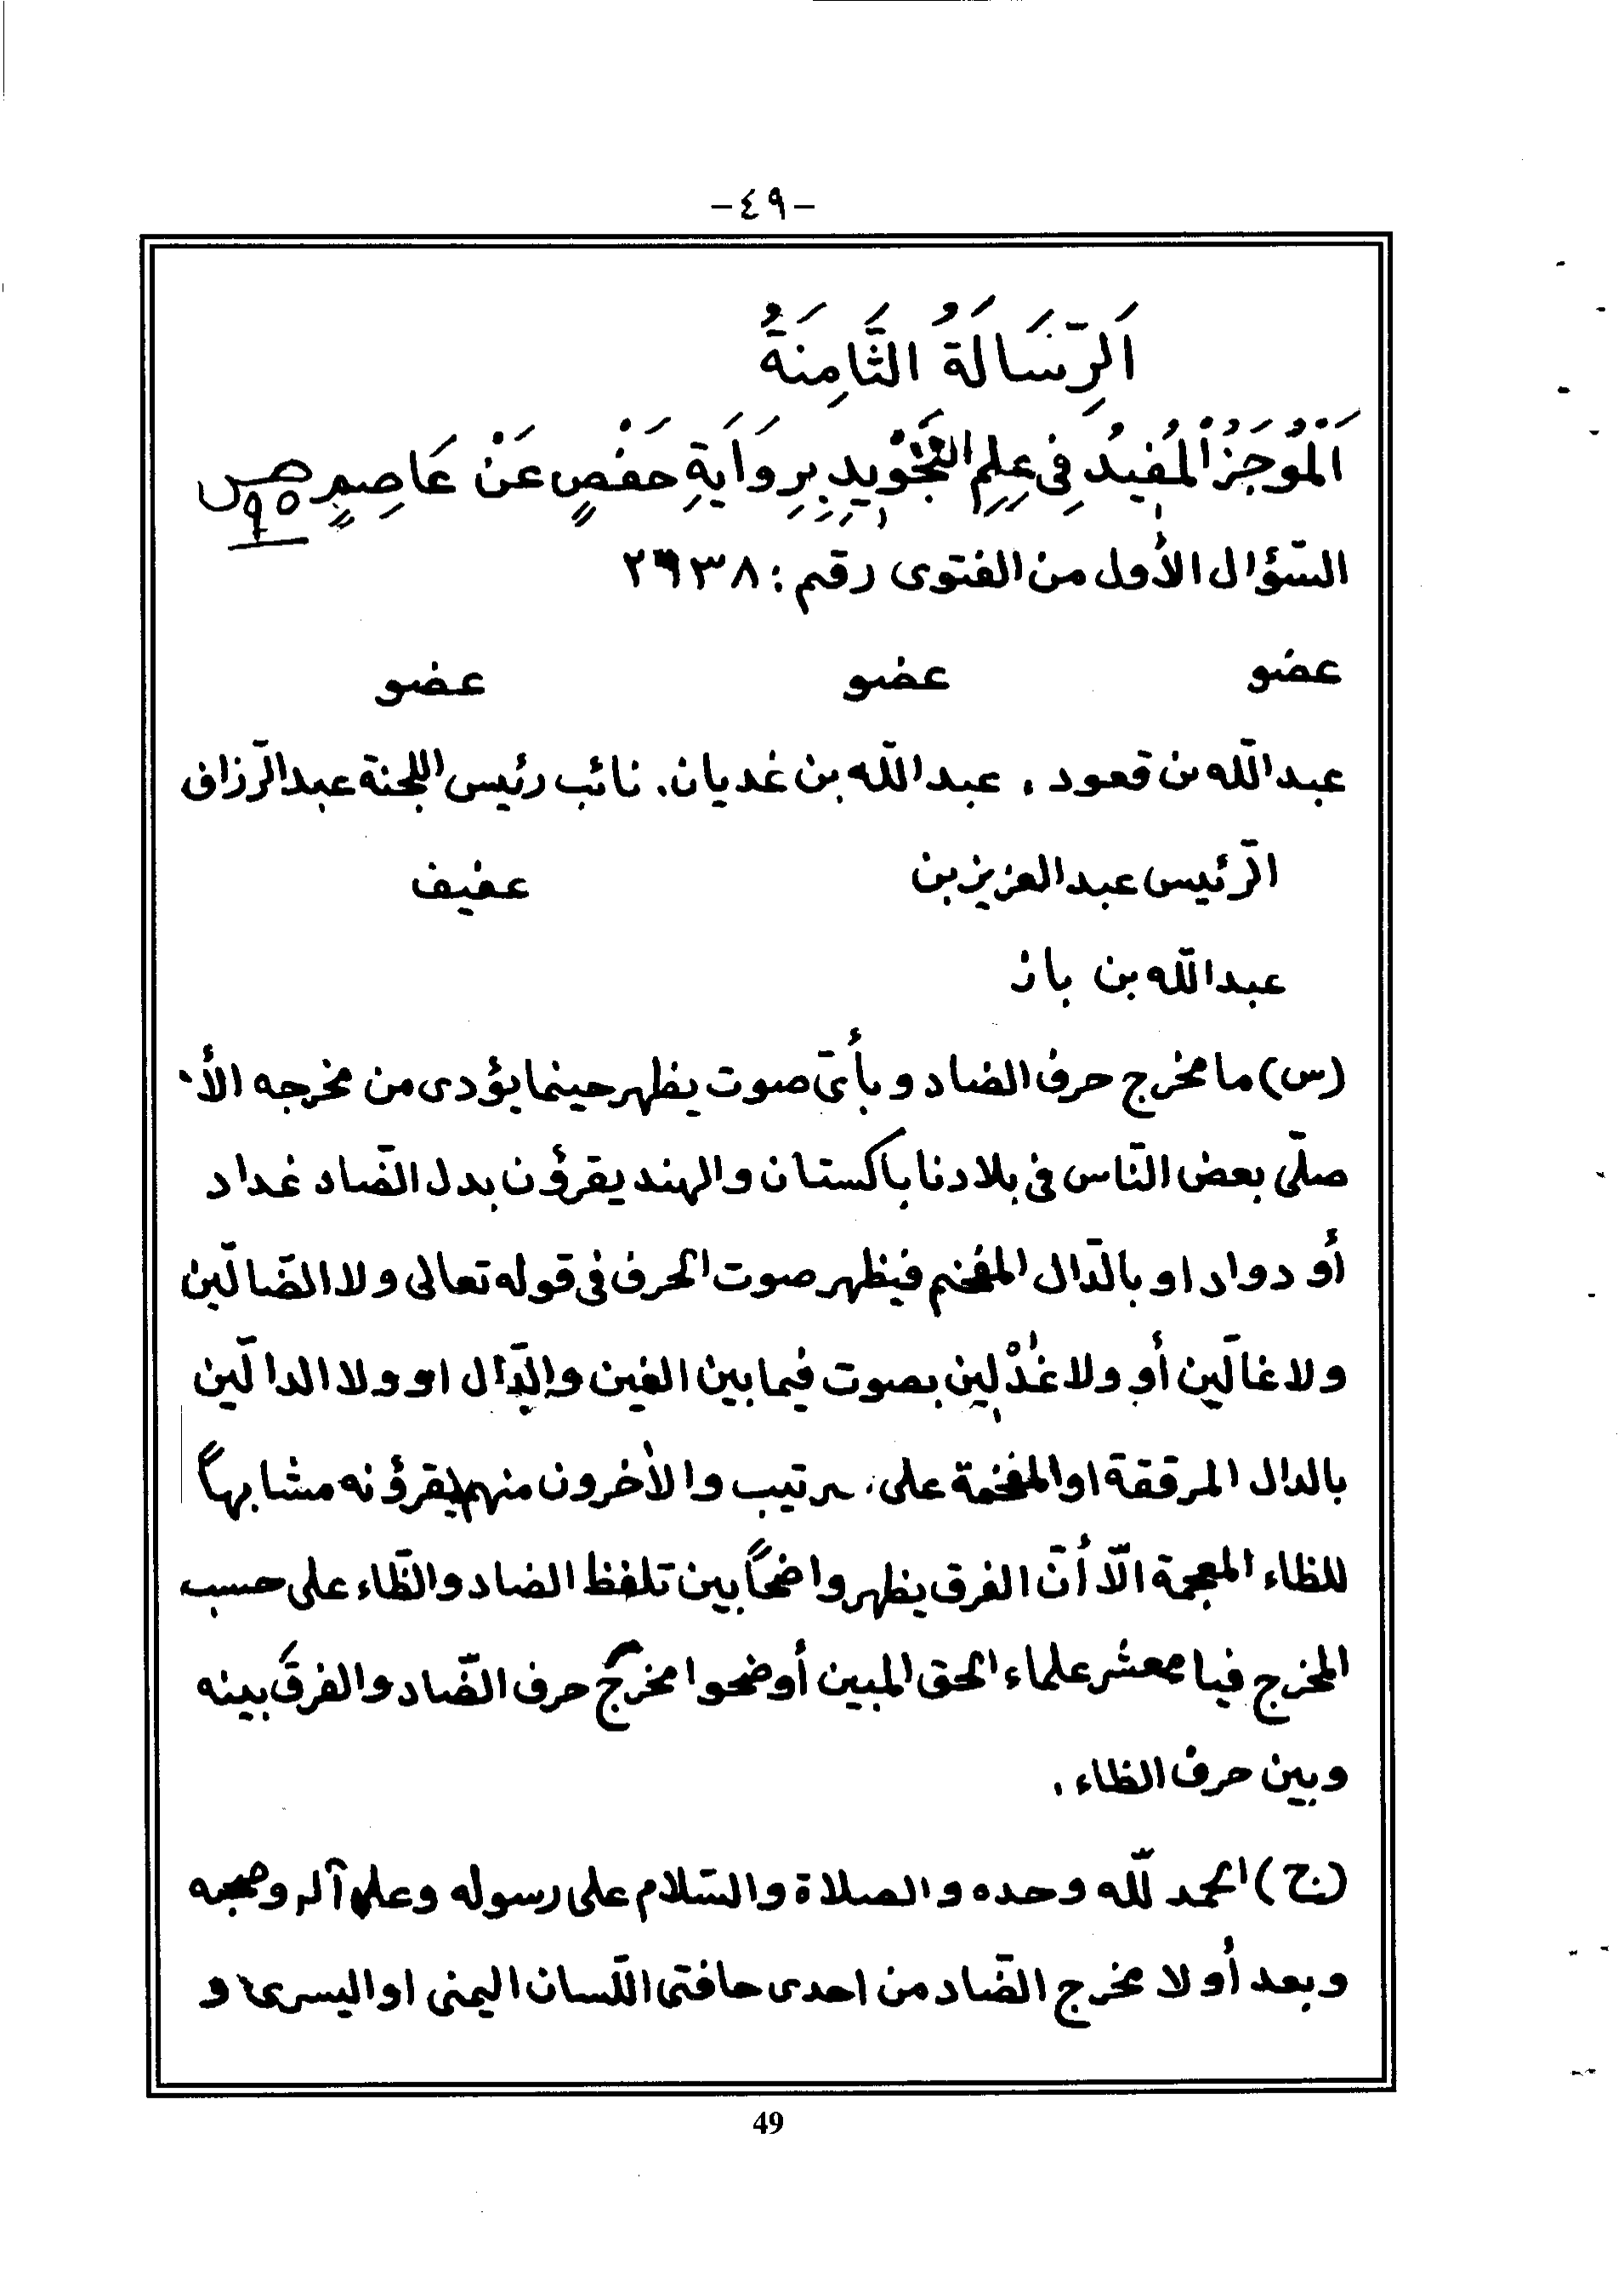 -٤٩-
اَلرِّسَالَةُ الثَّامِنَةُ
اَلْمُوْجَزُ الْمُفِيْدُ فِى عِلْمِ التَّجْوِيْدِ بِرِوَايَةِ حَفْصٍ عَنْ عَاصِمٍ ص ٩٥
السّؤال الأول من الفتوى رقم: ٢٦٣٨
عضو عضو عضو
عبد اللّه بن قعود . عبد اللّه بن غديان. نائب رئيس اللجنة عبد الرّزاق
الرّئيس عبد العزيز بن عفيف
عبد اللّه بن باز
(س) ما مخرج حرف الضاد و بأىّ صوت يظهر حينما يؤدى من مخرجه الأ
صلّى بعض النّاس فى بلادنا باكستان والهند يقرؤن بدل الضّاد غداد
أو دواد او بالدّال المفخم فيظهر صوت الحرف فى قوله تعالى ولا الضّالّين
ولا غالّين أو ولا غُدْلين بصوت فيما بين الغين والدّال او ولا الدالّين
بالدال المرققة او المفخمة على ترتيب والأخرون منهم يقرؤنه مشابهاً
للظاء المعجمة الّا أنّ الفرق يظهر واضحًا بين تلفظ الضاد والظّاء على حسب
المخرج فيا معشر علماء الحق المبين أوضحوا مخرج حرف الضّاد والفرق بينه
وبين حرف الظاء .
(ج) الحمد للّه وحده والصلاة والسّلام على رسوله وعلى آله وصحبه
وبعد أولا مخرج الضّاد من احدى حافتى اللّسان اليمنى او اليسرى و
49